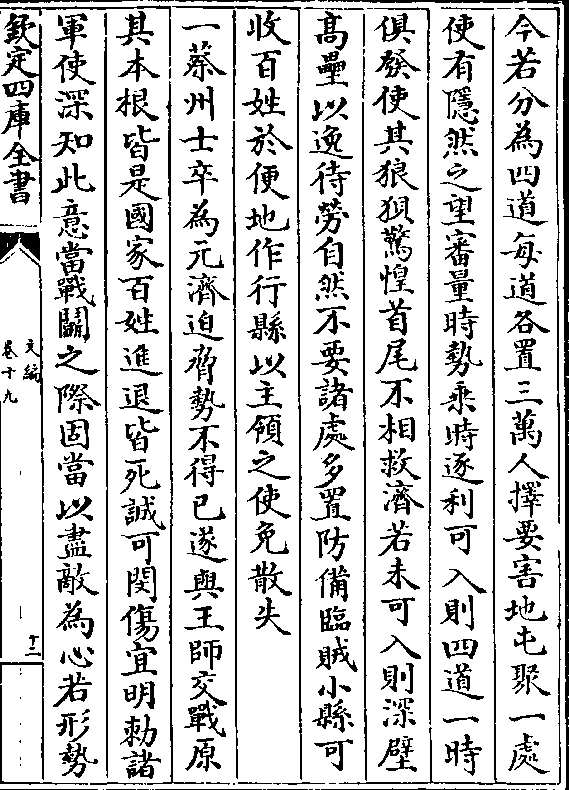 今若分為四道每道各置三萬人擇要害地屯聚一處
使有隱然之望審量時勢乘時逐利可入則四道一時
俱發使其狼狽驚惶首尾不相救濟若未可入則深壁
高壘以逸待勞自然不要諸處多置防備臨賊小縣可
收百姓於便地作行縣以主領之使免散失
一蔡州士卒為元濟迫脅勢不得已遂與王師交戰原
其本根皆是國家百姓進退皆死誠可閔傷宜明勅諸
軍使深知此意當戰鬭之際固當以盡敵為心若形勢
欽定四庫全書
文編
卷十九
十二